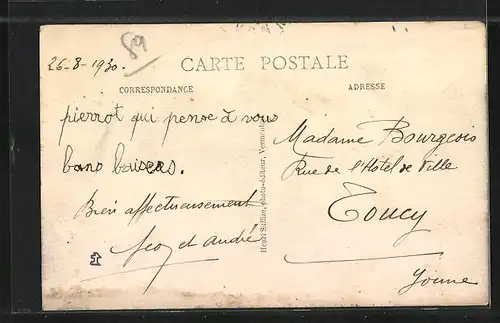 26-8-1930.
89
CARTE POSTALE
CORRESPONDANCE
ADRESSE
pierrot qui pense à vous
bons baisers.
Bien affectueusement
et André
Madame Bourgeois
Rue de l'Hôtel de Ville
Toucy
Yonne
photo-éditeur, Vermenton